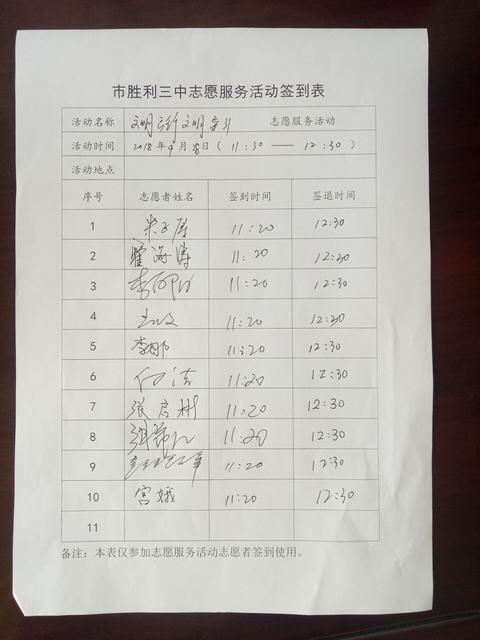 市胜利三中志愿服务活动签到表
活动名称 文明 文明 志愿服务活动
活动时间 2018年9月28日(11:30 —— 12:30)
活动地点
序号 志愿者姓名 签到时间 签退时间
1 11:20 12:30
2 11:20 12:20
3 11:20 12:30
4 11:20 12:20
5 李娜 11:20 12:30
6 11:20 12:30
7 张启彬 11:20 12:30
8 11:20 12:30
9 11:20 12:30
10 宫娥 11:20 12:30
11
备注：本表仅参加志愿服务活动志愿者签到使用。